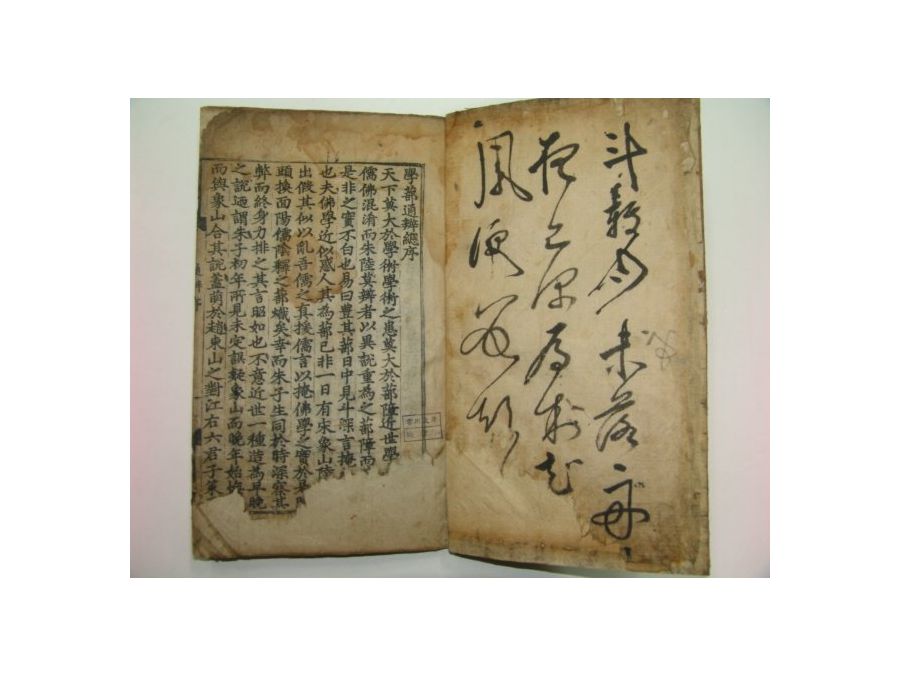 斗轉月未落舟
夜已深有村知
風便數聲
學蔀通辨總序
天下莫大於學術學術之患莫大於蔀障近世學
儒佛混淆而朱陸莫辨者以異說重為之蔀障而
是非之實不白也易曰豐其蔀日中見斗深言掩
也夫佛學近似惑人其為蔀已非一日有宋象山陸
出假其似以亂吾儒之真援儒言以掩佛學之實於是
頭換面陽儒陰釋之蔀熾矣幸而朱子生同於時深察其
弊而終身力排之其言昭如也不意近世一種造為早晚
之說迺謂朱子初年所見未定誤疑象山而晚年始悔
而與象山合其說蓋萌於趙東山之對江右六君子策